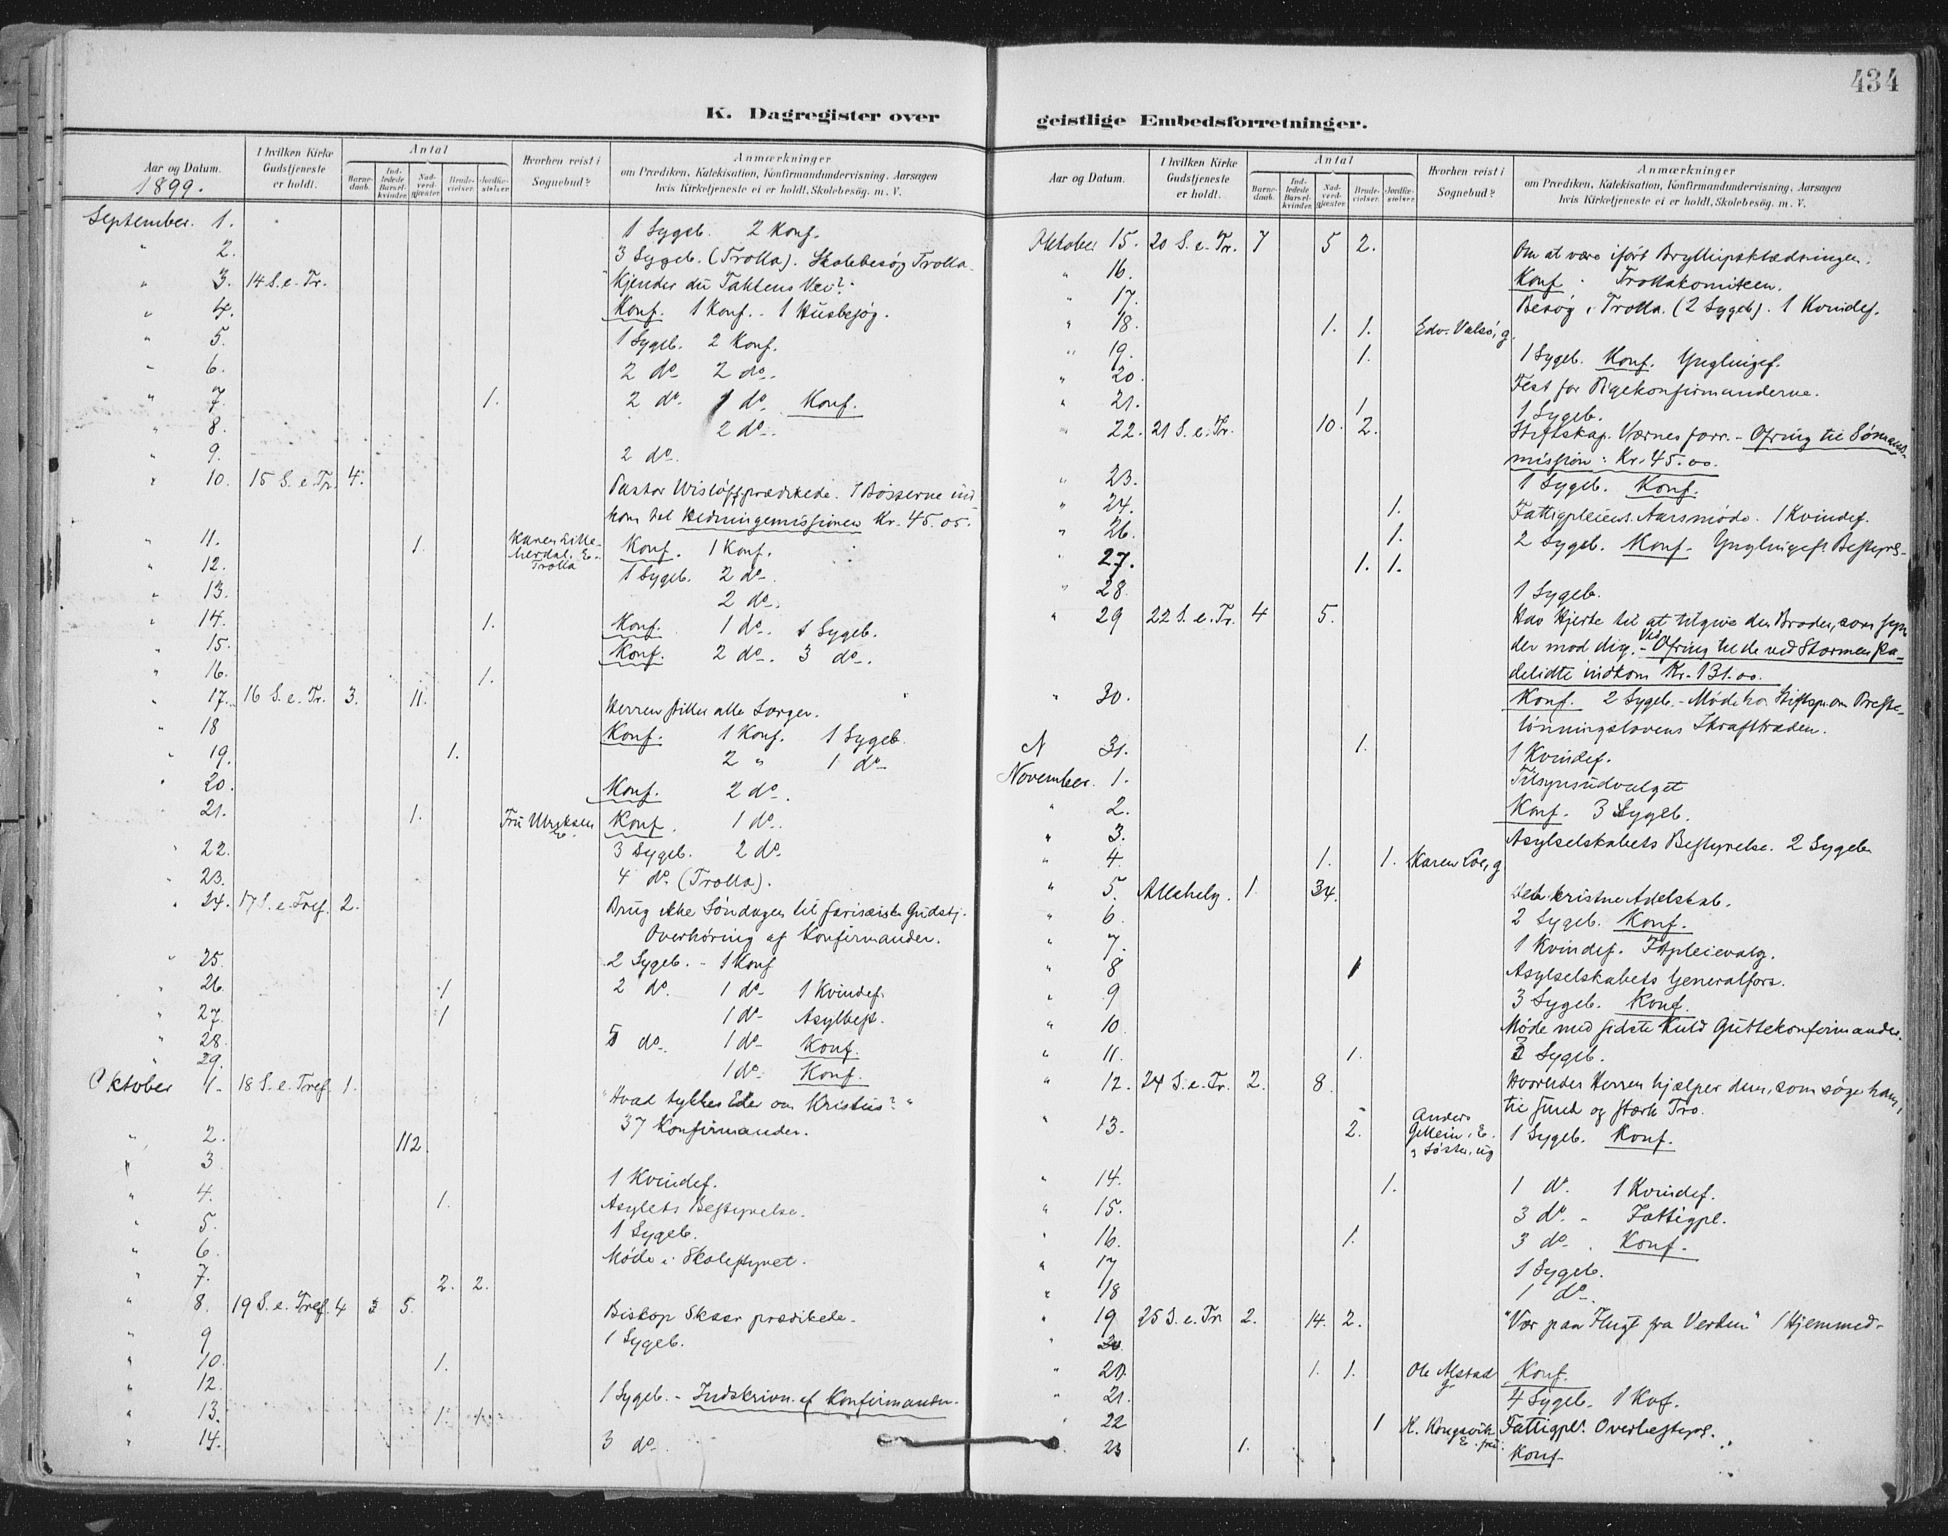 434
K. Dagregister over geistlige Embedsforretninger.
Aar og Datum. I hvilken Kirke Gudstjeneste er holdt. Antal Barnedaab. Indledede Barselkvinder. Nadverdgjæster. Brudevielser. Jordfæstelser. Hvorhen reist i Sognebud? Anmærkninger om Prædiken, Katekisation, Konfirmandundervisning, Aarsagen hvis Kirketjeneste ei er holdt, Skolebesøg. m. V.
1899.
September 1. 1 Sygeb. 2 Konf.
" 2. 3 Sygeb. (Trolla). Skolebesøg Trolla.
" 3. 14 S. e. Tr. Kjender du Taktens Vei?
" 4. Konf. 1 Konf. - 1 Husbesøg.
" 5. 1 Sygeb. 2 Konf.
" 6. 2 do 2 do.
" 7. 1. 2 do. 1 do. Konf.
" 8. 2 do.
" 9. 2 do.
" 10. 15 S. e. Tr. 4. Pastor Wisløff prædikede. I Bøsserne ind
kom til Hedningemissionen Kr. 45.05.
" 11. 1. Karen Lilleherdal. E. Trolla Konf. 1 Konf.
" 12. 1 Sygeb. 2 do.
" 13. 2 do.
" 14. 1. Konf. 1 do. 1 Sygeb.
" 15. Konf. 2 do. 3 do.
" 16. 1.
" 17. 16 S. e. Tr. 3. 11. Herren stiller alle Sorger.
" 18 Konf. 1 Konf. 1 Sygeb.
" 19. 1. 2 " 1 do
" 20. Konf. 2 do.
" 21. 1. Fru Ulryksen E. Konf. 1 do.
" 22. 3 Sygeb. 2 do.
" 23. 4 do. (Trolla).
" 24. 17 S. e. Tref. 2. Brug ikke Søndagen til farisæisk Gudstj.
Overhøring af Konfirmander.
" 25. 2 Sygeb. - 1 Konf
" 26. 1 2 do. 1 do. 1 Kvindef.
" 27. 1 1 do Asylbest.
" 28. 5 do. 1 do Konf.
" 29. 1 do. Konf.
Oktober 1. 18 S. e. Tref. 1. "Hvad tykkes Eder om Kristus?"
37 Konfirmander.
" 2. 112.
" 3. 1 Kvindef.
" 4. 1. Asylets Bestyrelse.
" 5. 1 Sygeb.
" 6. Møde i Skolestyret.
" 7. 2. 2.
" 8. 19 S. e. Tref. 4 3 5. Biskop Skaar prædikede.
" 9 1 Sygeb.
" 10. 1.
" 12. 1 Sygeb. - Indskrivn. af Konfirmander.
" 13. 1. 1.
" 14. 3 do.
Aar og Datum. I hvilken Kirke Gudstjeneste er holdt. Antal Barnedaab. Indledede Barselkvinder. Nadverdgjæster. Brudevielser. Jordfæstelser. Hvorhen reist i Sognebud? Anmærkninger om Prædiken, Katekisation, Konfirmandundervisning, Aarsagen hvis Kirketjeneste ei er holdt, Skolebesøg. m. V.
Oktober 15. 20 S. e. Tr. 7 5 2. Om at være iført Bryllupsklædningen.
" 16. Konf. Trollakomiteen.
" 17. Besøg i Trolla. (2 Sygeb). 1 Kvindef.
" 18. 1. 1. Edv. Valsø, g.
" 19. 1. 1 Sygeb. Konf. Ynglingef.
" 20. Fest for Pigekonfirmanderne.
" 21. 1 1 Sygeb.
" 22. 21 S. e. Tr. 10. 2. Stiftskap. Værnes forr. - Ofring til Sømands-
mission: Kr. 45.00.
" 23. 1 Sygeb. Konf.
" 24. 1. Fattigpleiens Aarsmøde. 1 Kvindef.
" 26. 1. 2 Sygeb. Konf. Ynglingef. Bestyrs-
" 27. 1. 1.
" 28. 1 Sygeb.
" 29 22 S. e. Tr. 4 5. Hav Hjerte til at tilgive den Broder, som syn
der mod dig. - Ved Ofring til de ved Stormen ska-
delidte indkom Kr. 131.00.
" 30. Konf. 2 Sygeb. - Møde hos Stiftspr. om Preste-
lønningslovens Ikrafttræden.
31. 1. 1 Kvindef.
November. 1. Tilsynsudvalget
" 2. Konf. 3 Sygeb.
" 3. Asylselskabets Bestyrelse. 2 Sygeb.
" 4. 1. 1. Karen Loe, g
" 5. Allehelg. 1. 34. Det kristne Adelskab.
" 6. 2 Sygeb. Konf.
" 7. 1 Kvindef.
" 8 1 Asylselskabets Generalfors.
" 9 3 Sygeb. Konf.
" 10. Møde med sidste Kuld Guttekonfirmander.
" 11. 1. 2 Sygeb.
" 12. 24 S. e. Tr. 2. 8. Hvorledes Herren hjælper dem, som søge ham,
til sund og stærk Tro.
" 13. 2. Anders E. Søster, ug 1 Sygeb. Konf.
" 14. 1. 1 do. 1 Kvindef.
" 15. 3 do. - Fattigpl.
" 16. 1. 3 do. Konf.
" 17 1 Sygeb.
" 18 1 do
" 19 25 S. e. Tr 2. 14. 2. "Vær paa Flugt fra Verden" 1 Hjemmed-
" 20.
" 20. 1. 1. Ole Alstad g. Konf.
" 21. 4 Sygeb. 1 Kvf.
" 22 1 K. Kongsvik E. Fattigpl. Overbestyr.
" 23 1. Konf.